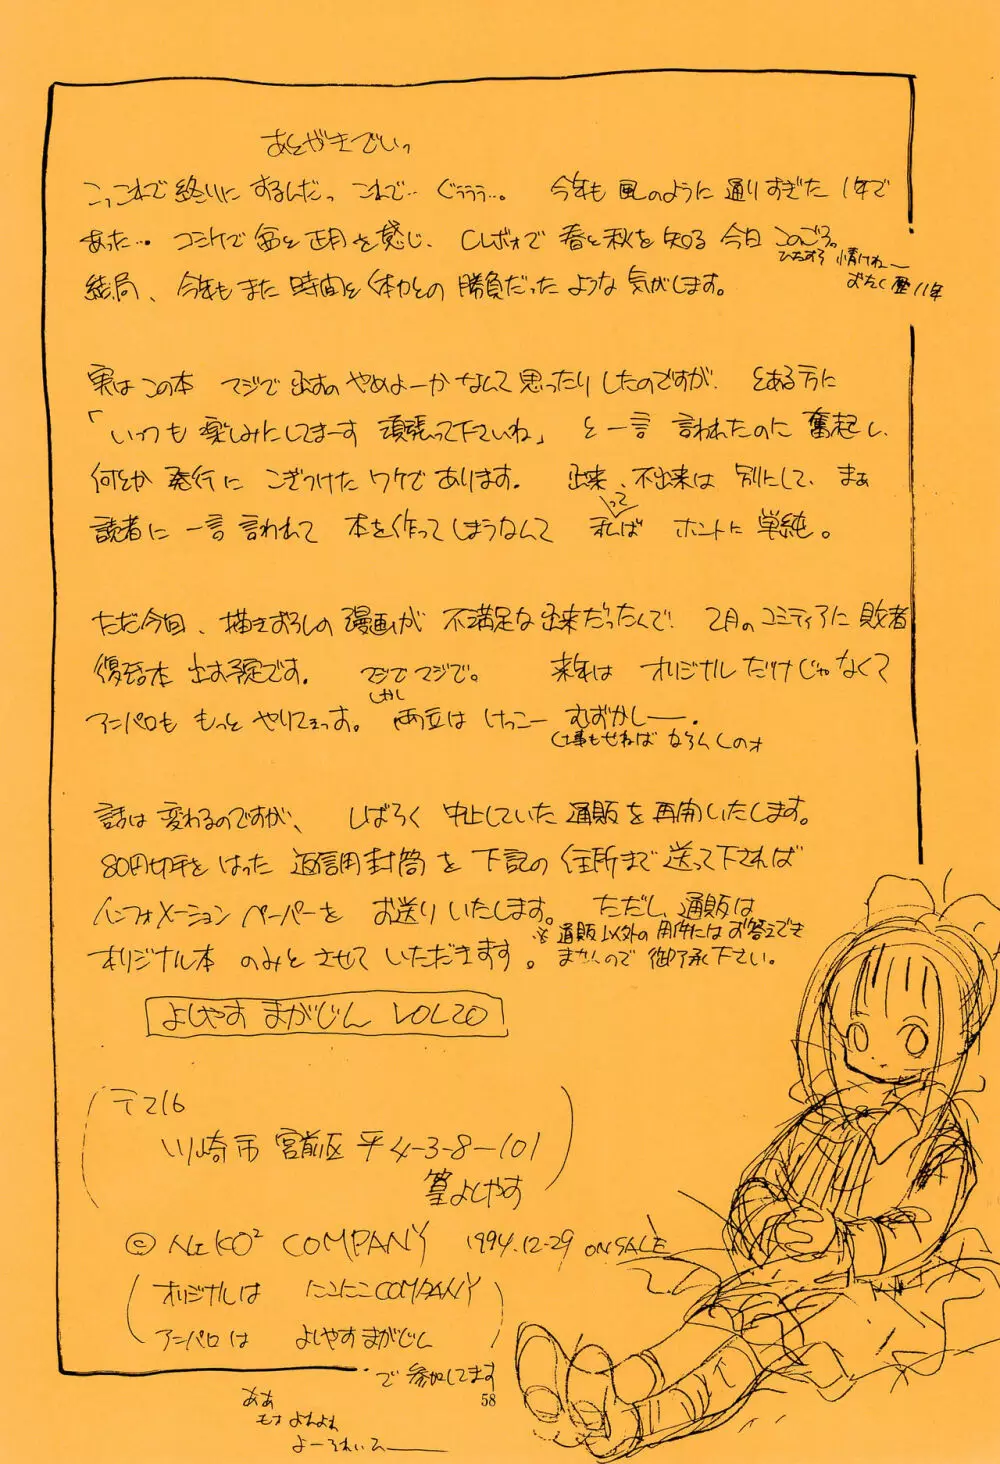 あとがきでいっ
こっこれで終りにするんだっ これで… ぐぅぅぅ…。 今年も風のように通りすぎた1年で
あった… コミケで盆と正月を感じ、CレボォでP春と秋を知る今日このごろ。
ひたすら情けねー
おたく歴11年
結局、今年もまた時間と体力との勝負だったような気がします。
実はこの本 マジで出すのやめよーかなんて思ったりしたのですが、とある方に
「いつも楽しみにしてまーす 頑張って下さいね」と一言言われたのに奮起し、
何とか発行にこぎつけたワケであります。 出来、不出来は別にして、まぁ
読者に一言言われて本を作ってしまうなんて 私ってば ホントに単純。
ただ今回、描きおろしの漫画が不満足な出来だったんで、2月のコミティアに敗者
復活本 出す予定です。 マジでマジで。 来年はオリジナルだけじゃなくて
アニパロももっとやりてぇっす。 しかし両立はけっこーむずかしー。
仕事もせねばならんしのォ
話は変わるのですが、しばらく中止していた通販を再開いたします。
80円切手をはった返信用封筒を下記の住所まで送って下されば
インフォメーションペーパーをお送りいたします。 ただし、通販は
オリジナル本のみとさせていただきます。
※通販以外の用件にはお答えでき
ませんので御了承下さい。
よしやすまがじん VOL20
〒216
川崎市宮前区平4-3-8-101
篁よしやす
© NEKO² COMPANY 1994.12.29 ON SALE
オリジナルは にこにこCOMPANY
アニパロは よしやすまがじん
で参加してます
58
ああ
もォよれよれ
よーろれいひー